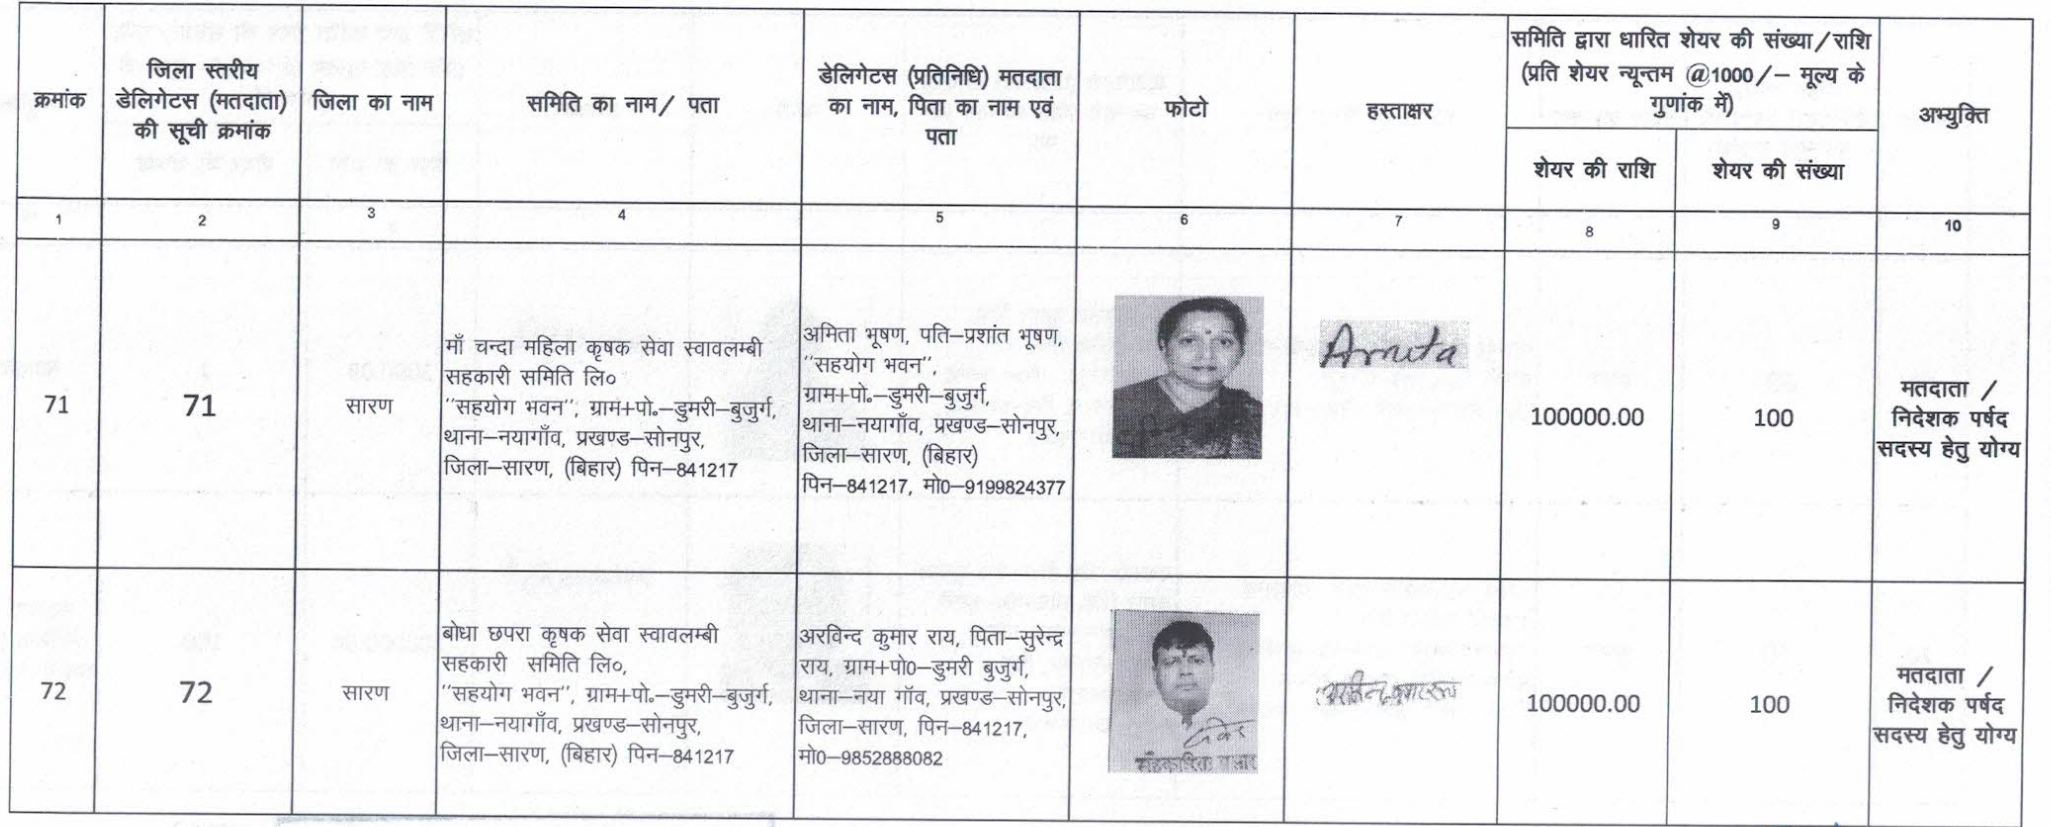 क्रमांक
जिला स्तरीय
डेलिगेटस (मतदाता)
की सूची क्रमांक
जिला का नाम
समिति का नाम/ पता
डेलिगेटस (प्रतिनिधि) मतदाता
का नाम, पिता का नाम एवं
पता
फोटो
हस्ताक्षर
समिति द्वारा धारित शेयर की संख्या/राशि
(प्रति शेयर न्यूनतम @1000/– मूल्य के
गुणांक में)
शेयर की राशि
शेयर की संख्या
अभ्युक्ति
1 2 3 4 5 6 7 8 9 10
71
71
सारण
माँ चन्दा महिला कृषक सेवा स्वावलम्बी
सहकारी समिति लि०
''सहयोग भवन'', ग्राम+पो.–डुमरी–बुजुर्ग,
थाना–नयागाँव, प्रखण्ड–सोनपुर,
जिला–सारण, (बिहार) पिन–841217
अमिता भूषण, पति–प्रशांत भूषण,
''सहयोग भवन'',
ग्राम+पो.–डुमरी–बुजुर्ग,
थाना–नयागाँव, प्रखण्ड–सोनपुर,
जिला–सारण, (बिहार)
पिन–841217, मो0–9199824377
Amita
100000.00
100
मतदाता /
निदेशक पर्षद
सदस्य हेतु योग्य
72
72
सारण
बोधा छपरा कृषक सेवा स्वावलम्बी
सहकारी समिति लि०,
''सहयोग भवन'', ग्राम+पो.–डुमरी–बुजुर्ग,
थाना–नयागाँव, प्रखण्ड–सोनपुर,
जिला–सारण, (बिहार) पिन–841217
अरविन्द कुमार राय, पिता–सुरेन्द्र
राय, ग्राम+पो0–डुमरी बुजुर्ग,
थाना–नया गॉव, प्रखण्ड–सोनपुर,
जिला–सारण, पिन–841217,
मो0–9852888082
100000.00
100
मतदाता /
निदेशक पर्षद
सदस्य हेतु योग्य